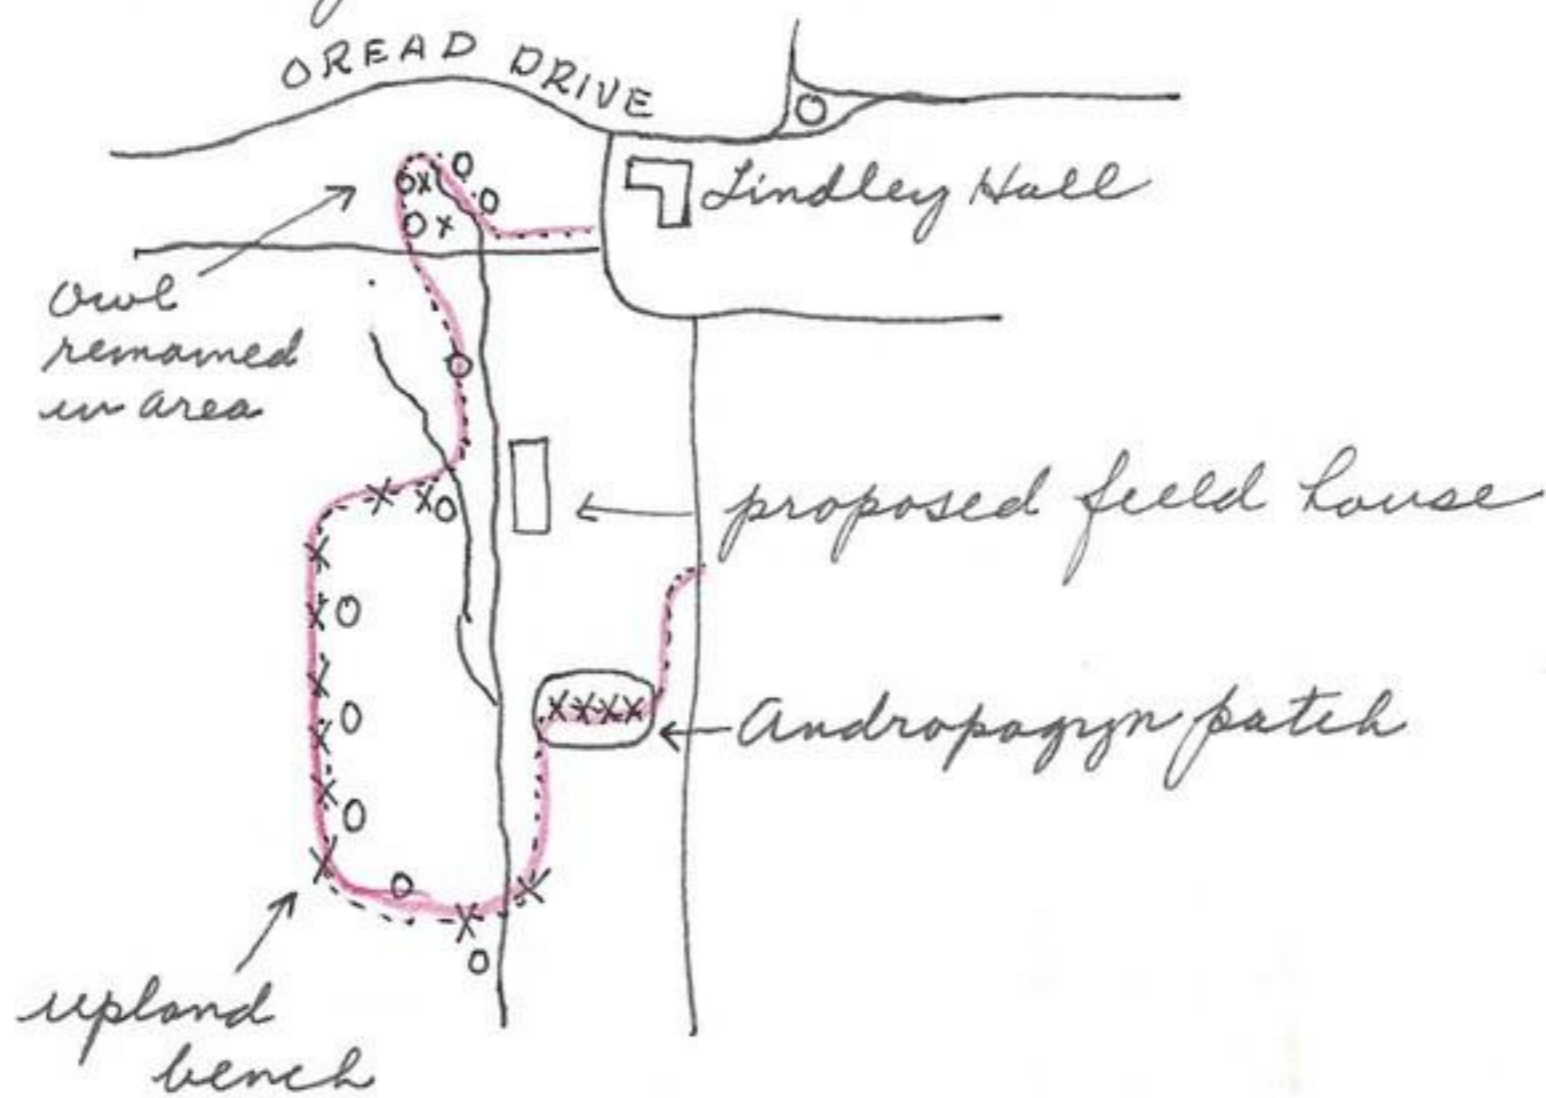 OREAD DRIVE
Lindley Hall
Owl
remained
in area
proposed field house
Andropogyn patch
upland
bench